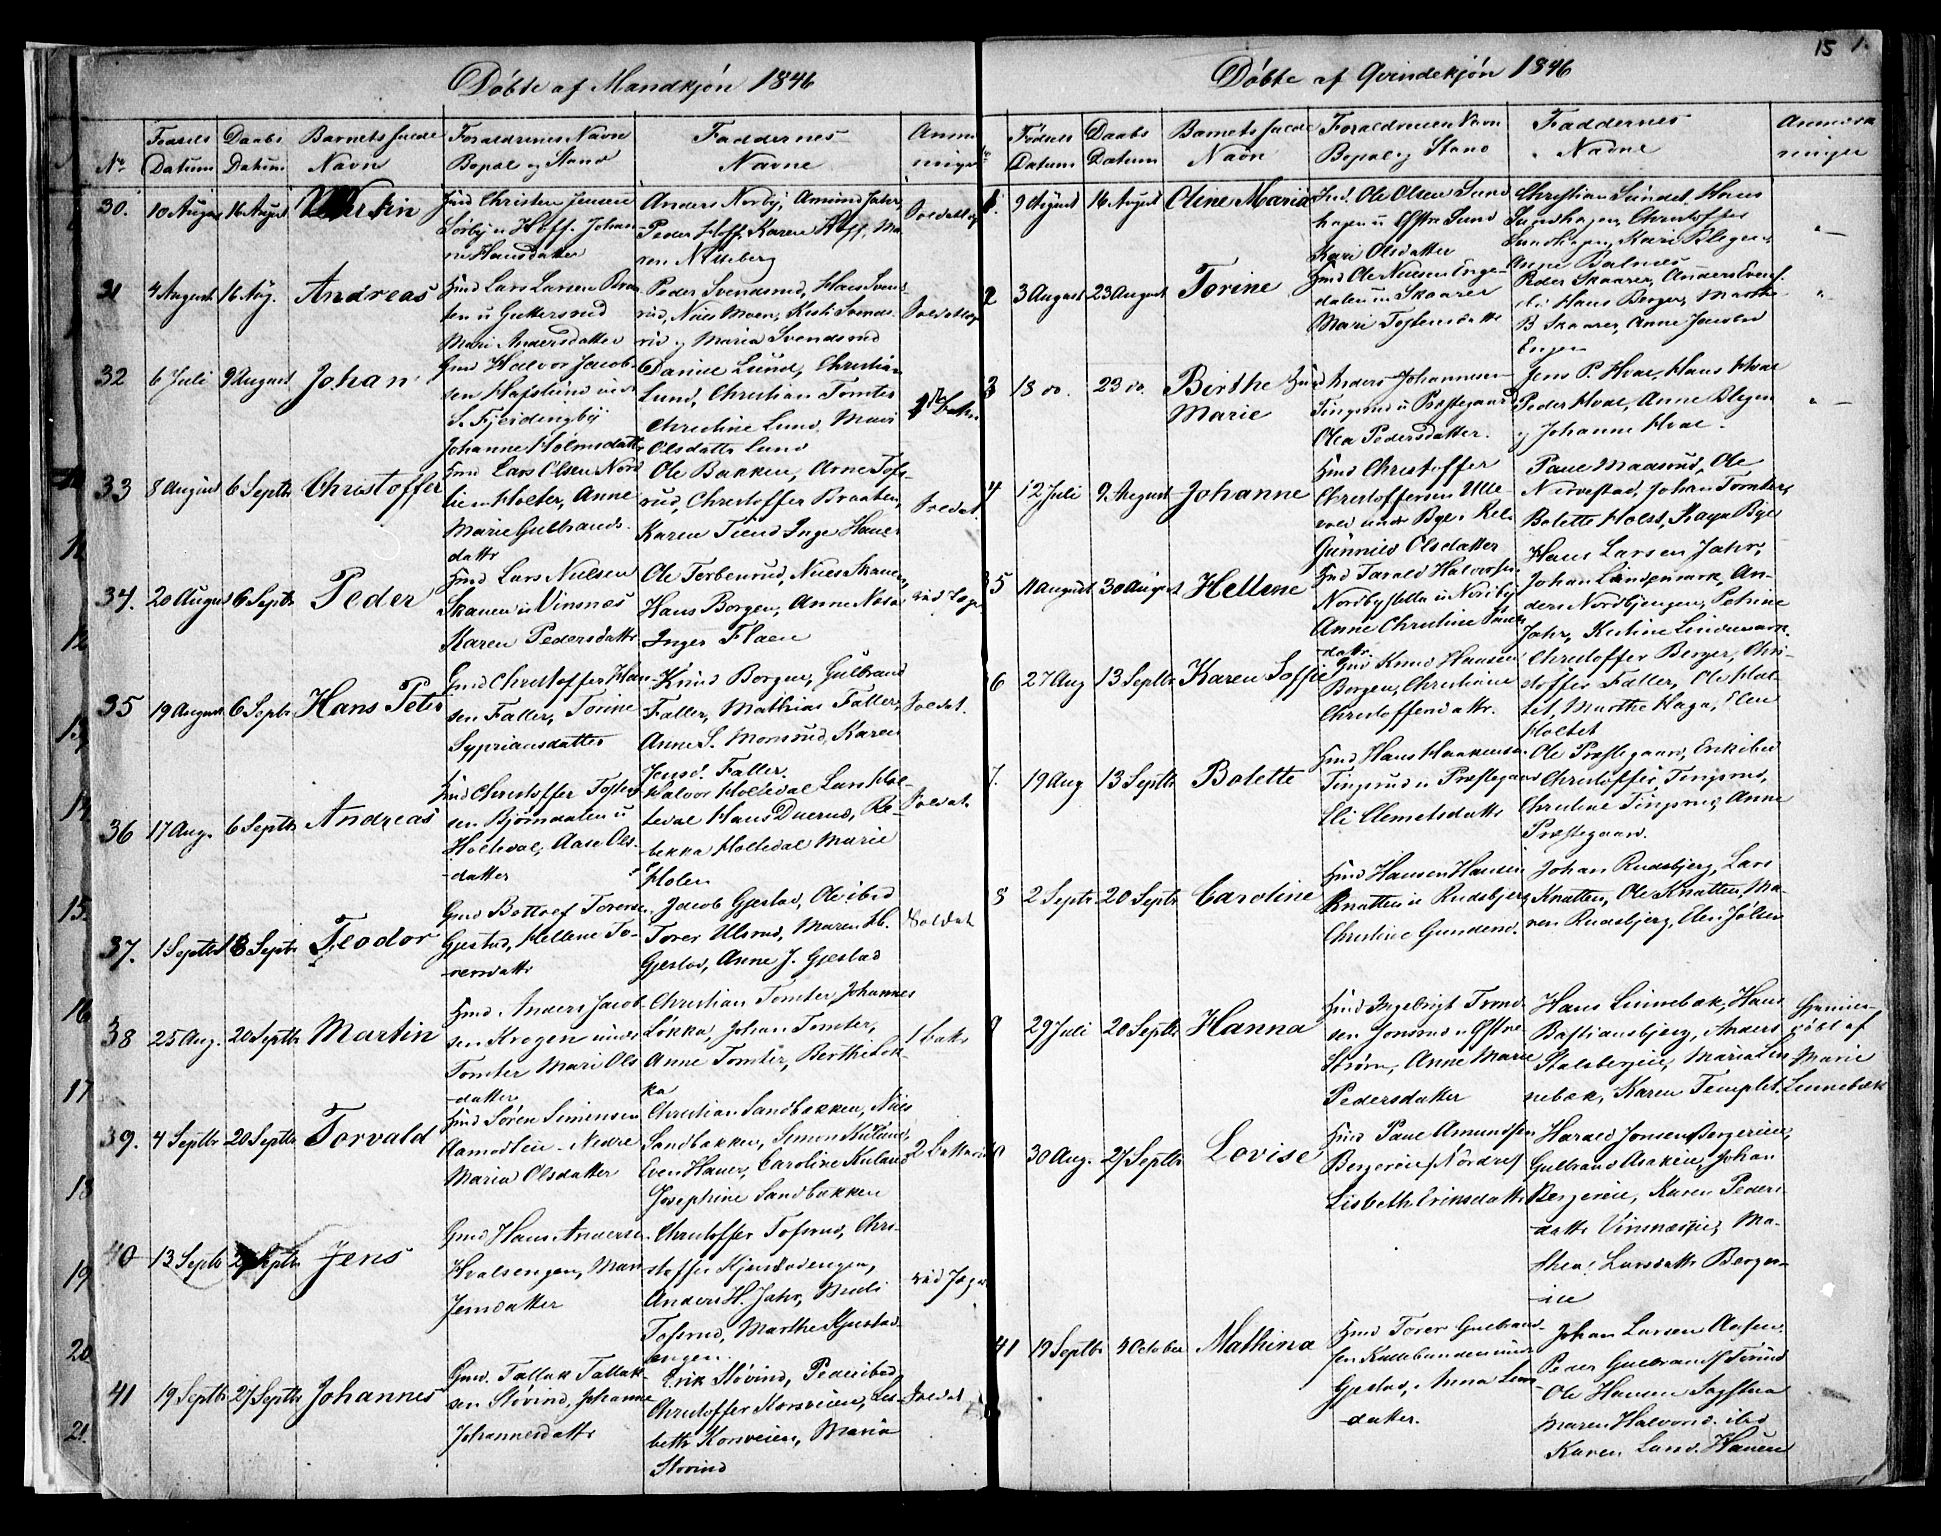 15 1.
Döbte af Mandkjøn 1846
No Fodsels Datum
Daabs Datum
Barnets fulde Navn
Forældrenes Navn Bopæl og Stand
Faddernes Navne
30. 10 August 16 August
Gmd Christen Jensen
Sörby u Hoff. Johan-
ne Hansdatter
Anders Norby, Amund Jahr,
Peder Hoff, Karen Hoff, Ma-
ren
31 4 August 16 Aug. Andreas
Gmd Lars Larsen
u Gukersrud
Mari Andersdatter
Peder Svendsrud, Hans Svends-
rud, Niels Moen, Kisti Svends-
rud og Maria Svendsrud
32 6 Juli 9 August Johan
Gmd Halvor Jacob-
sen Hafslund und
S. Fjerdingby
Johanne Holmsdatter
Daniel Lund, Christian
Lund, Christian Tomter
Christine Lund, Mari
Olsdatter Lund
33 8 August 6 Septbr Christoffer
Gmd Lars Olsen Nord
lie u Holter, Anne
Marie Gulbrands-
datter
Ole Bakken, Arne Tofs-
rud, Christoffer Braaten,
Karen Inge Hauer
Soldat.
34. 20 August 6 Septbr Peder
Gmd Lars Nielsen
Skauen u Vinsnes
Karen Pedersdattr
Ole Torbenrud, Niels Skauen,
Hans Borgen, Anne
Inger Flaen
35 19 August 6 Septbr Hans Peter
Gmd Christoffer Han-
sen Faller, Torine
Sypriansdatter
Knud Borgen, Gulbrand
Faller, Mathias Faller,
Anne S. Monsrud, Karen
Jensd. Faller.
Soldat.
36 17 Aug. 6 Septbr Andreas
Gmd Christoffer Tosten-
sen Bjørndalen u
Holtedal, Aase Ols-
datter
Halvor Holtedal Lars Hol-
tedal Hans Duerud, Re-
bekka Holtedal Marie
Holen
Soldat.
37. 1 Septbr 13 Septbr Teodor
Gmd Bottolf Torersen
Gjestad, Hellene To-
rersdattr
Jacob Gjestad, Ole ibid
Torer Ulsrud, Maren H.
Gjestad, Anne J. Gjestad
Soldat
38 25 Aug. 20 Septbr Martin
Gmd Anders Jacob-
sen Krogen under
Tomter Mari Ols-
datter
Christian Tomter Johannes
Løkka, Johan Tomter,
Anne Tomter, Berthe Løk-
ka
39. 4 Septbr 20 Septbr Torvald
Gmd Søren Simensen
Aamodten Nedre
Maria Olsdatter
Christian Sandbakken, Niels
Sandbakken, Simen Kuland,
Even Hauer, Caroline Kuland
Josephine Sandbakken
40 13 Septbr 27 Septbr Jens
Gmd Hans Andersen
Hvalsengen, Mari
Jensdatter
Christoffer Tofsrud, Chri-
stoffer Kjustadengen,
Anders H. Jahr,
Tofsrud, Marthe Kjustad-
engen.
41 19 Septbr 27 Septbr Johannes
Gmd. Tallak Tallak-
sen Støvind, Johanne
Johannesdattr
Erik Støvind, Peder ibid
Christoffer Korsveien, Lis-
beth Korsveien, Maria
Støvind
Soldat
Döbte af Qvindekjön 1846
Fødsels Datum
Daabs Datum
Barnets fulde Navn
Forældrenes Navn Bopæl og Stand
Faddernes Navne
Anmærk ninger
9 August 16 August Oline Maria
Gmd. Ole Olsen Sund
hagen u Østre Sund
Kari Olsdatter
Christian Sundet, Hans
Sundhagen, Christoffer
Sundhagen, Kari Klegen,
Anne Balnes
2 3 August 23 August Torine
Gmd Ole Nielsen Enge-
dalen u Skaarer
Mari Tostensdattr
Peder Skaarer, Anders
Hans Berger, Marthe
B Skaarer, Anne Jacobsd
Engen
3 13 do. 23 do. Birthe Marie
Gmd Anders Johannesen
Tingsrud u Præstegaard
Olea Pedersdatter.
Jens P. Hval, Hans Hval
Peder Hval, Anne Klegen
og Johanne Hval.
4 12 Juli 9 August Johanne
Gmd Christoffer
Christoffersen Ulle-
under Bye
Gunnild Olsdatter
Paul Maasrud, Ole
Johan Tomter,
Bolette Holst, Kaya Bye
5 11 August 30 August Hellene
Gmd Tarald Halvorsen
Nordby
Anne Christine
Hans Larsen Jahr,
Johan Lindemark, An-
ders Nordbyengen, Petrine
Jahr, Kirstine Lindemark.
6 27 Aug 13 Septbr Karen Soffie
Gmd Knud Hansen
Borgen, Christiane
Christoffersdattr.
Christoffer Berger, Chri-
stoffer Faller, Ole Hol-
tet, Marthe Haga, Elen
Holtet
7. 19 Aug 13 Septbr Bolette
Gmd, Hans Haakensen
Tingsrud u Præstegaard
Eli Clemetsdattr
Ole Præstegaard, Erik ibid
Christoffer Tingsrud,
Christine Tingsrud, Anne
Præstegaard.
8 2 Septbr 20 Septbr Caroline
Gmd Hansen Hansen
Knatten u Rudsbjerg
Christine Gundersd.
Johan Rudsbjerg, Lars
Knatten, Ole Knatten, Ma-
ren Rudsbjerg, Elen Jølsen
9 29 Juli 20 Septbr Hanna
Gmd Ingebrigt Trond-
sen Jonsrud u Østre
Strøm, Anne Marie
Pedersdatter
Hans Linnebæk, Hans
Bastiansbjerg, Anders
Stalsbergeie, Maria Lin-
nebæk, Karen Templet.
Hjemme-
døbt af
Marie
Linnebæk
30 Aug. 27 Septbr Lovise
Gmd Paul Amundsen
Bergereie /Nordre/
Lisbeth Eriksdattr
Harald Jonsen Bergereie,
Gulbrand Aaseie, Johan
Bergereie, Karen Peders-
dattr Vinnæseie, Ma-
thea Larsdattr Berger-
eie
41 19 Septbr 4 October Mathina
Gmd Torer Gulbrand-
sen Kullebunden und
Gjestad, Anna Lars-
datter.
Johan Larsen Aasen
Peder Gulbrands
Ole Hansen
Maren Halvorsd. ibid
Karen Lund. Hauer